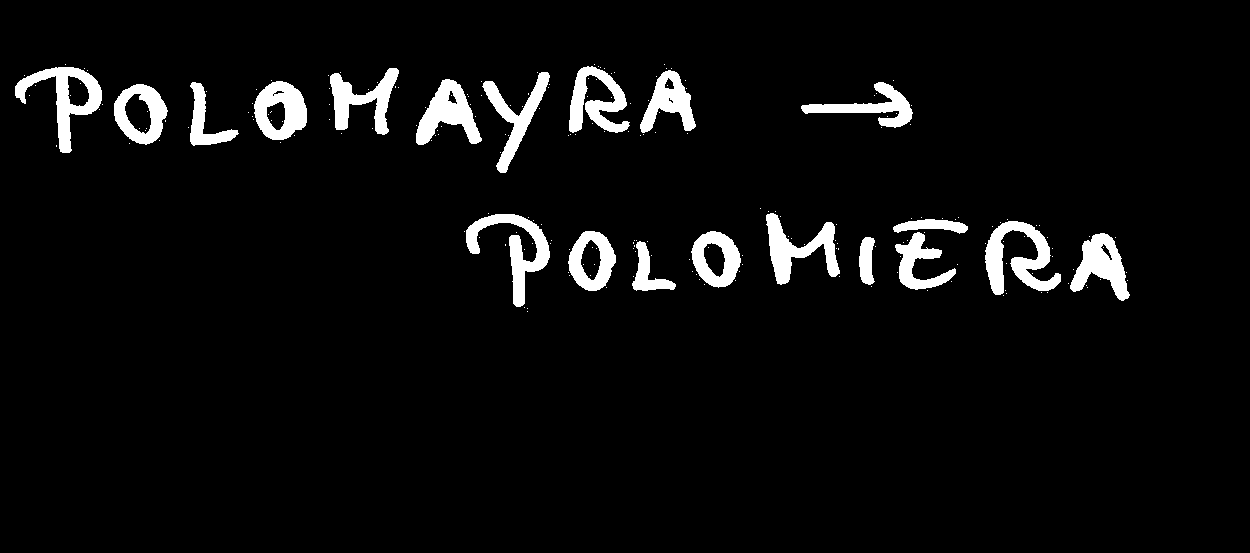 POLOMAYRA →
POLOMIERA